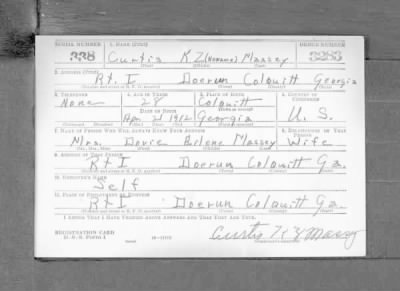 SERIAL NUMBER 1. NAME (Print) ORDER NUMBER
338 Curtis K Z (NONAME) Massey 3283
(First) (Middle) (Last)
2. ADDRESS (Print)
Rt. I Doerun Colquitt Georgia
3. TELEPHONE 4. AGE IN YEARS 5. PLACE OF BIRTH 6. COUNTRY OF CITIZENSHIP
None 28 Colquitt
DATE OF BIRTH
Apr 21 1912 Georgia U. S.
7. NAME OF PERSON WHO WILL ALWAYS KNOW YOUR ADDRESS 8. RELATIONSHIP OF THAT PERSON
Mrs. Dovie Arlene Massey Wife
(Mr., Mrs., Miss) (First) (Middle) (Last)
9. ADDRESS OF THAT PERSON
Rt I Doerun Colquitt Ga.
10. EMPLOYER'S NAME
Self
11. PLACE OF EMPLOYMENT OR BUSINESS
Rt I Doerun Colquitt Ga.
I AFFIRM THAT I HAVE VERIFIED ABOVE ANSWERS AND THAT THEY ARE TRUE.
REGISTRATION CARD
D. S. S. Form 1 Curtis K Z Massey